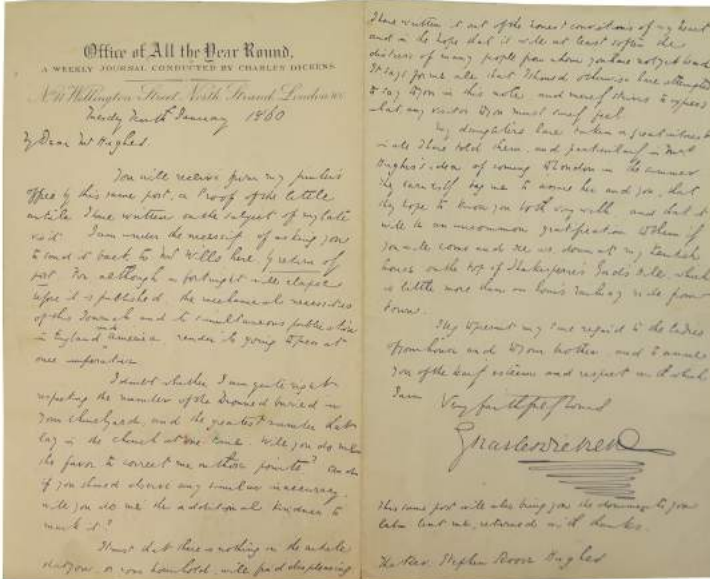 Office of All the Year Round,
A WEEKLY JOURNAL CONDUCTED BY CHARLES DICKENS.
No. 11 Wellington Street North Strand London W.C.
Tenth January 1860
My Dear Mr Hughes.
You will receive from my printer's
office by this same post, a Proof of the little
article I have written on the subject of my late
visit. I am under the necessity of asking you
to send it back to Mr Wills here, by return of
post. For although a fortnight will elapse
before it is published, the mechanical necessities
of this Journal and its simultaneous publication
in England and America render its going to press at
once imperative.
I doubt whether I am quite right
respecting the number of the Drowned buried in
your churchyard, and the greatest number that
lay in the church at one time. Will you do me
the favor to correct me on those points? And
if you should observe any similar inaccuracy,
will you do me the additional kindness to
mark it?
I trust that there is nothing in the article
that you, or your household, will find displeasing.
I have written it out of the honest convictions of my heart
and in the hope that it will at least soften the
distress of many people from whom you have not yet heard.
It says for me all that I should otherwise have attempted
to say to you in this note, and merely strives to express
what any visitor to you must surely feel.
My daughters have taken a great interest
in all I have told them, and particularly in Mrs
Hughes's idea of coming to London in the summer.
They earnestly beg me to assure her and you, that
they hope to know you both very well, and that it
will be an uncommon gratification to them if
you will come and see us, down at my Kentish
house on the top of Shakespeare's Gads Hill, which
is little more than an hour's railway ride from
town.
I beg to present my kind regard to the ladies
of your house and to your brother, and to assure
you of the esteem and respect with which
I am
Very faithfully Yours
Charles Dickens
This same post will also bring you the documents you
lent me, returned with thanks.
The Rev. Stephen Roose Hughes